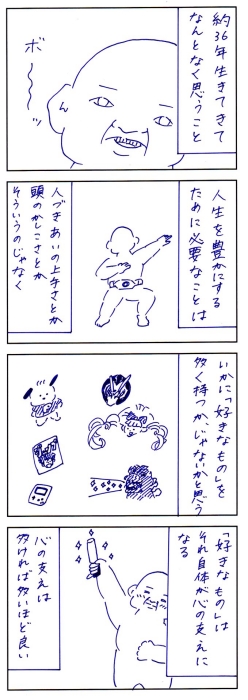 約36年生きてきて
なんとなく思うこと
ボ〜〜ッ
人生を豊かにする
ために必要なことは
人づきあいの上手さとか
頭のかしこさとか
そういうのじゃなく
いかに「好きなもの」を
多く持つか、じゃないかと思う
「好きなもの」は
それ自体が心の支えに
なる
心の支えは
多ければ多いほど良い